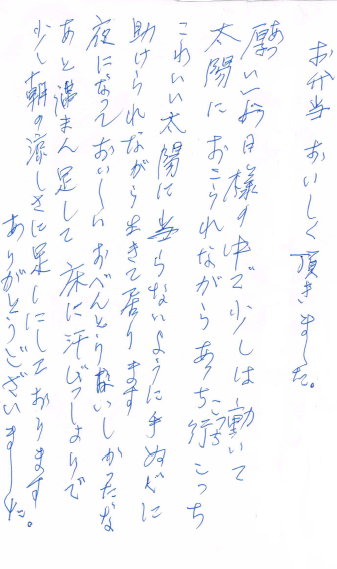 お弁当 おいしく頂きました。
あつい一日お日様の中で少しは動いて
太陽に おこられながら あっち行 こっち
こわいい太陽に当らないように手ぬぐに
助けられながら生きて居ります
夜になって おいしい おべんとう 美味しかったな
あと満足して 床に汗びっしょりで
少し朝の涼しさに足しにしております
ありがとうございました。